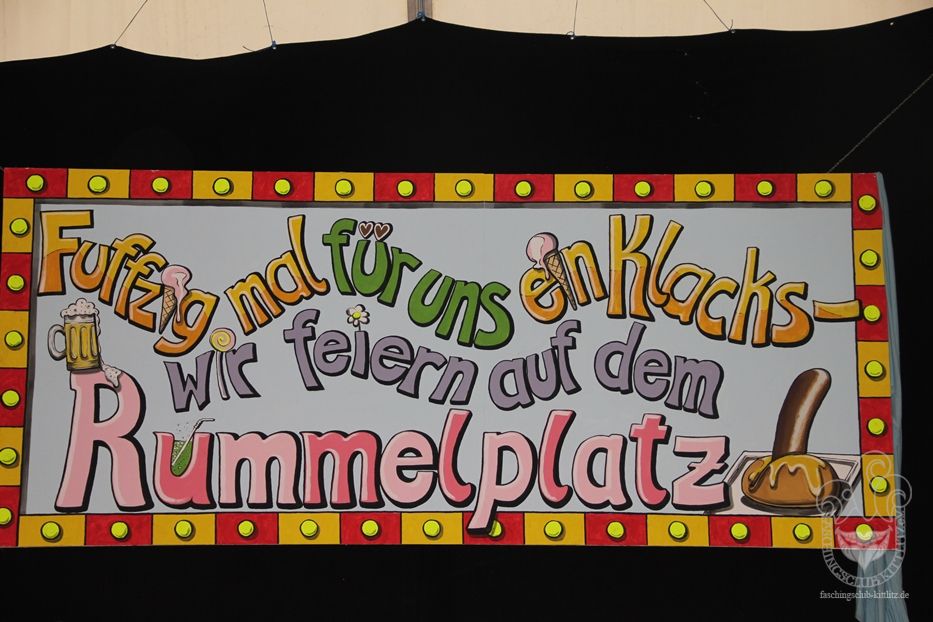 Fuffzig mal für uns ein Klacks-
wir feiern auf dem
Rummelplatz
FASCHINGSCLUB KITTLITZ
faschingsclub-kittlitz.de